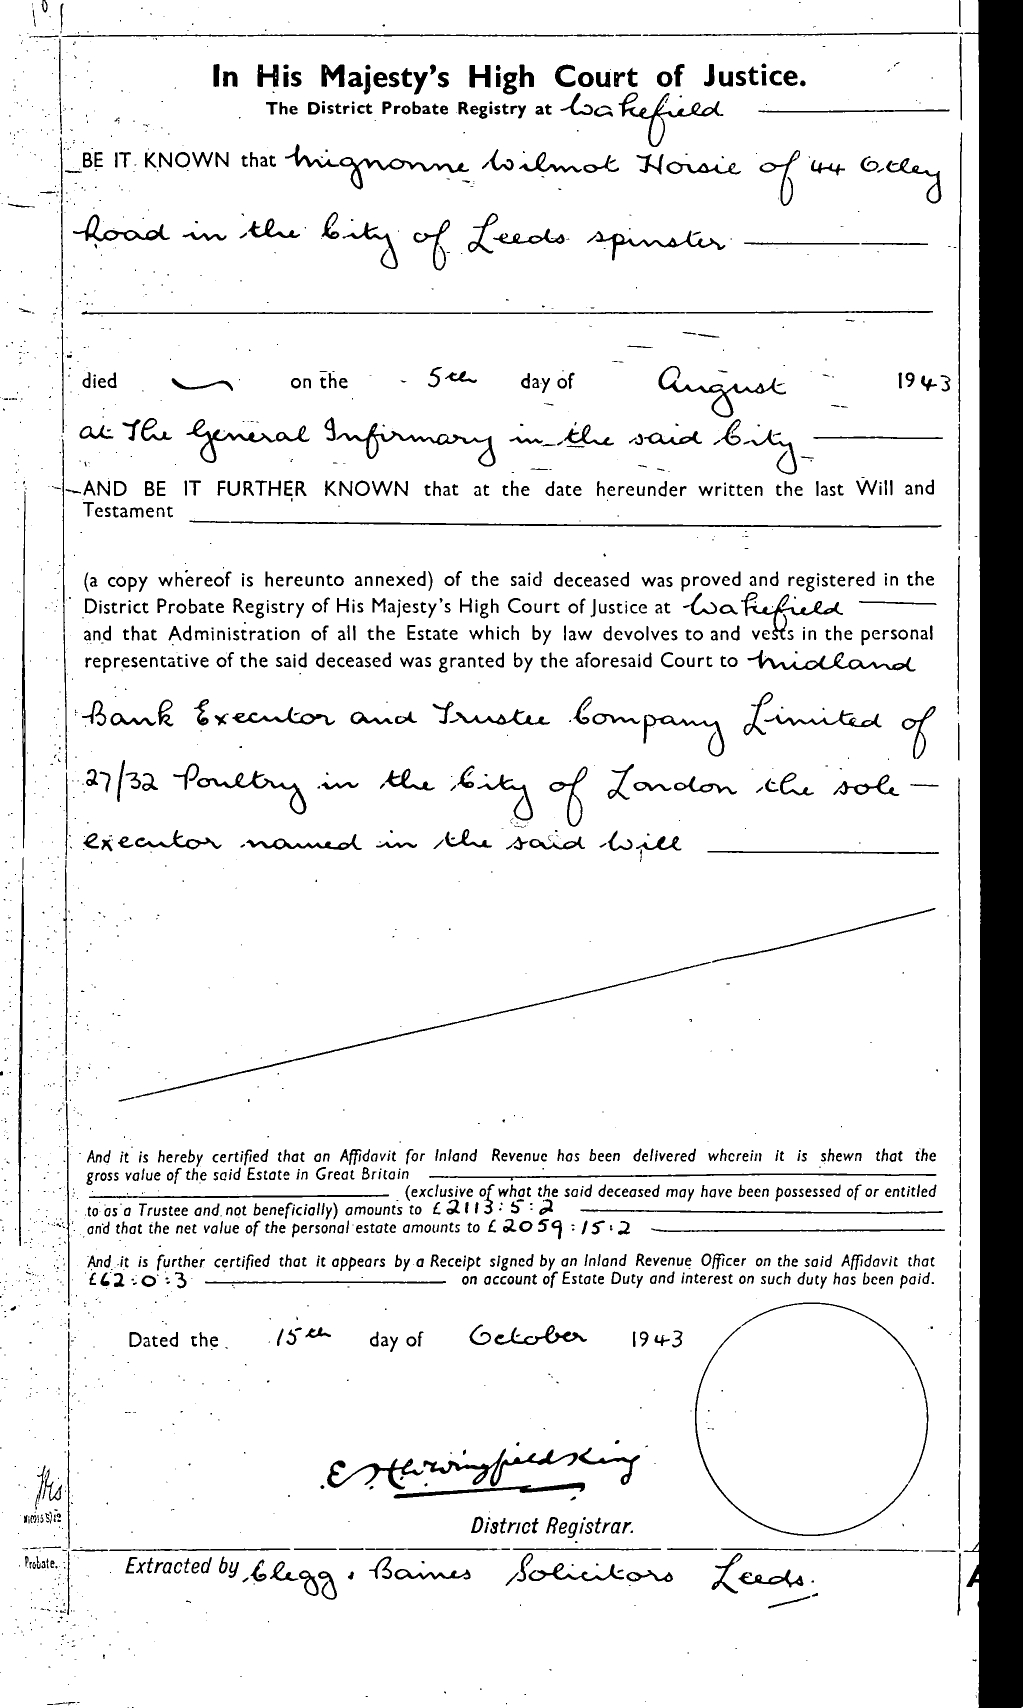 In His Majesty's High Court of Justice.
The District Probate Registry at Wakefield
BE IT KNOWN that Mignonne Wilmot Horsie of 44 Otley
Road in the City of Leeds spinster
died on the 5th day of August 1943
at The General Infirmary in the said City
AND BE IT FURTHER KNOWN that at the date hereunder written the last Will and
Testament
(a copy whereof is hereunto annexed) of the said deceased was proved and registered in the
District Probate Registry of His Majesty's High Court of Justice at Wakefield
and that Administration of all the Estate which by law devolves to and vests in the personal
representative of the said deceased was granted by the aforesaid Court to Midland
Bank Executor and Trustee Company Limited of
27/32 Poultry in the City of London the sole
executor named in the said Will
And it is hereby certified that an Affidavit for Inland Revenue has been delivered wherein it is shewn that the
gross value of the said Estate in Great Britain
(exclusive of what the said deceased may have been possessed of or entitled
to as a Trustee and not beneficially) amounts to £2113:5:2
and that the net value of the personal estate amounts to £2059:15:2
And it is further certified that it appears by a Receipt signed by an Inland Revenue Officer on the said Affidavit that
£62:0:3 on account of Estate Duty and interest on such duty has been paid.
Dated the 15th day of October 1943
District Registrar.
Probate.
Extracted by Clegg, Baines Solicitors Leeds.